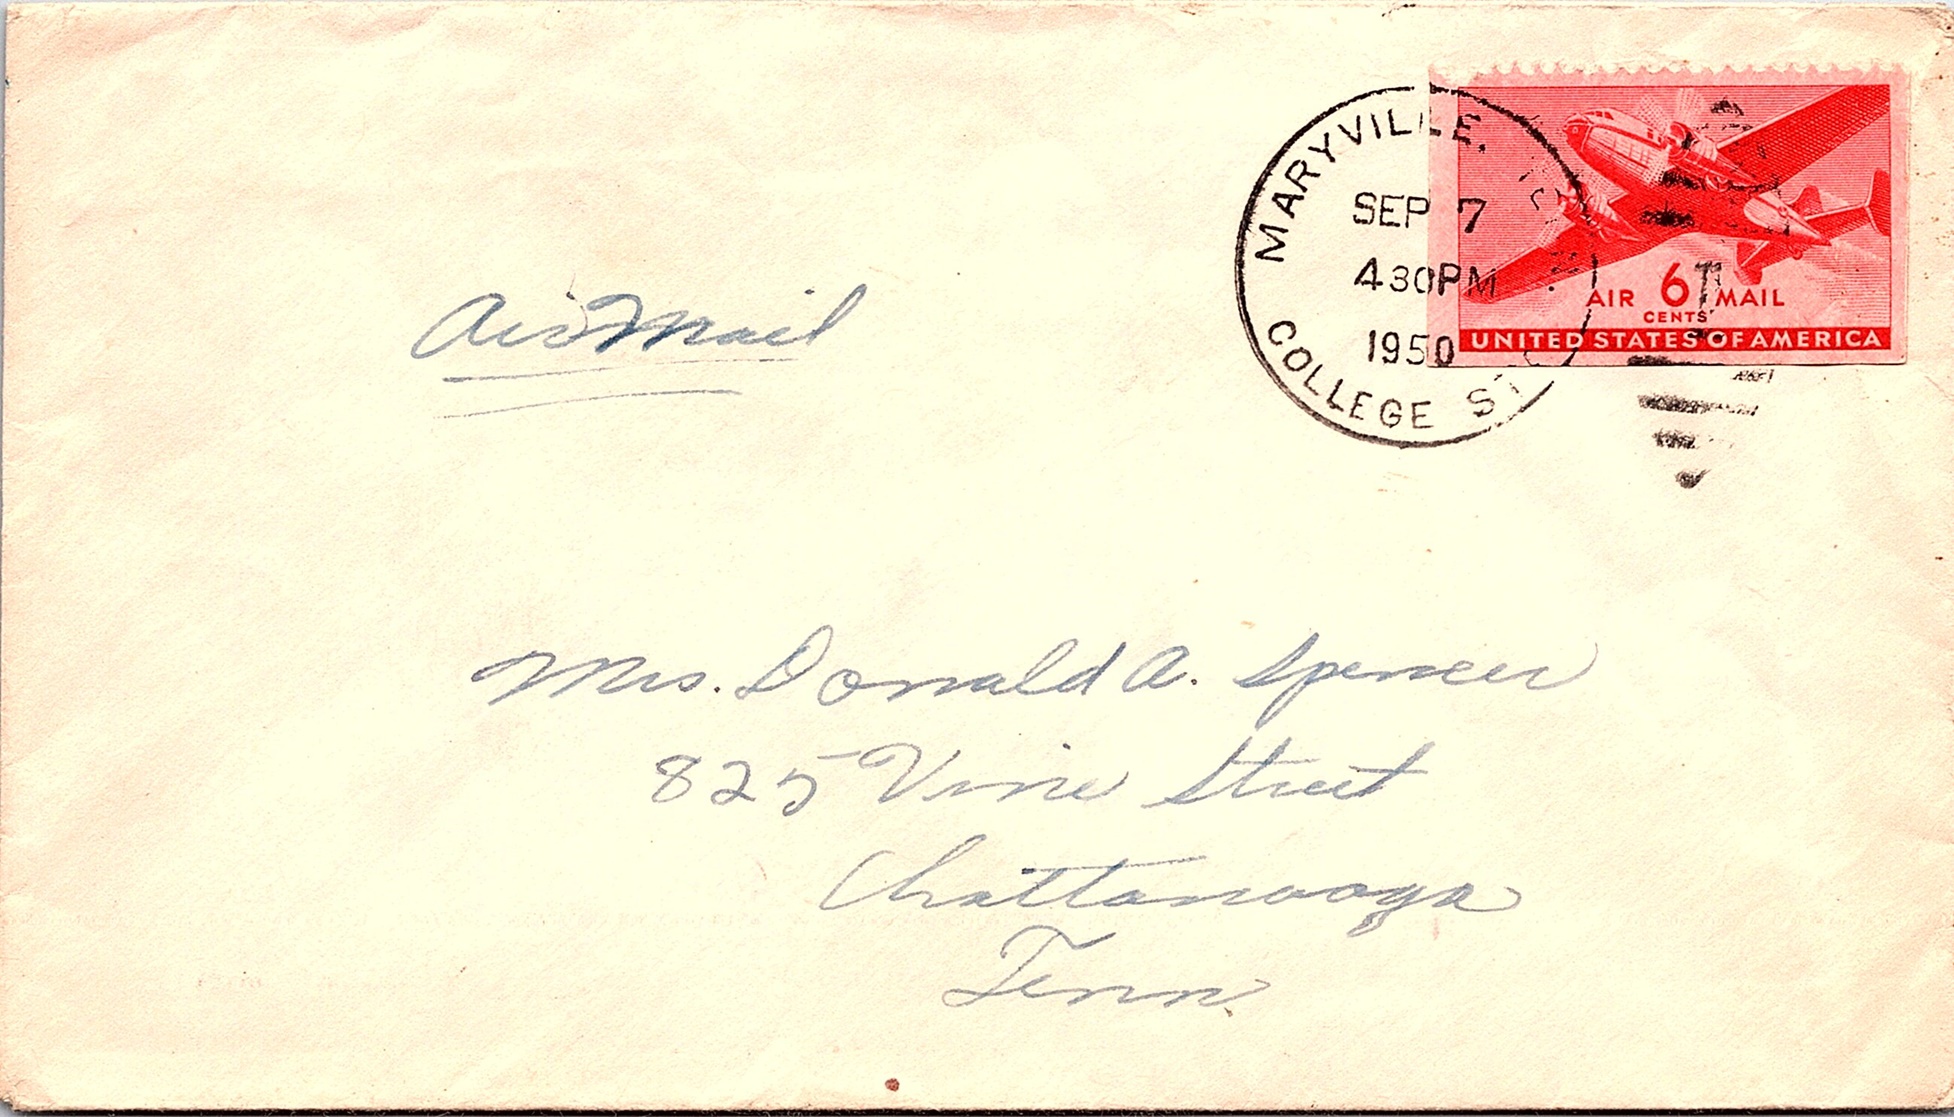 MARYVILLE.
SEP 7
430PM
1950
COLLEGE ST
AIR 6 MAIL
CENTS
UNITED STATES OF AMERICA
Air Mail
Mrs. Donald A. Spencer
825 Vine Street
Chattanooga
Tenn